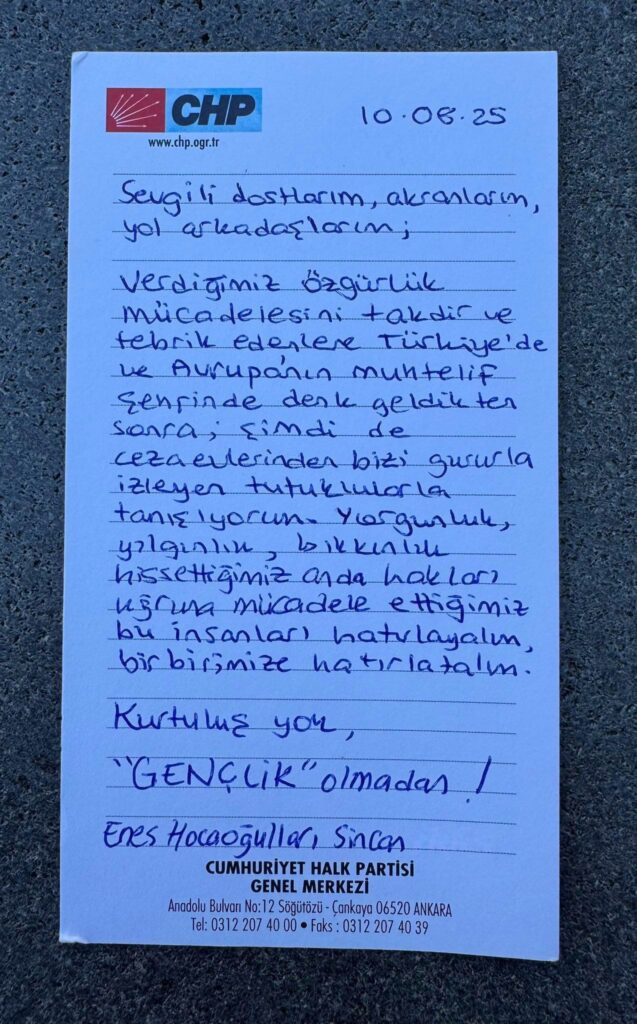 CHP
www.chp.ogr.tr
10.08.25
Sevgili dostlarım, akranlarım,
yol arkadaşlarım;
Verdiğimiz özgürlük
mücadelesini takdir ve
tebrik edenlere Türkiye'de
ve Avrupa'nın muhtelif
şehrinde denk geldikten
sonra; şimdi de
cezaevlerinden bizi gururla
izleyen tutuklularla
tanışıyorum. Yorgunluk,
yılgınlık, bıkkınlık
hissettiğimiz anda hakları
uğruna mücadele ettiğimiz
bu insanları hatırlayalım,
birbirimize hatırlatalım.
Kurtuluş yok,
"GENÇLİK" olmadan!
Enes Hocaoğulları Sincan
CUMHURİYET HALK PARTİSİ
GENEL MERKEZİ
Anadolu Bulvarı No:12 Söğütözü - Çankaya 06520 ANKARA
Tel: 0312 207 40 00 • Faks : 0312 207 40 39